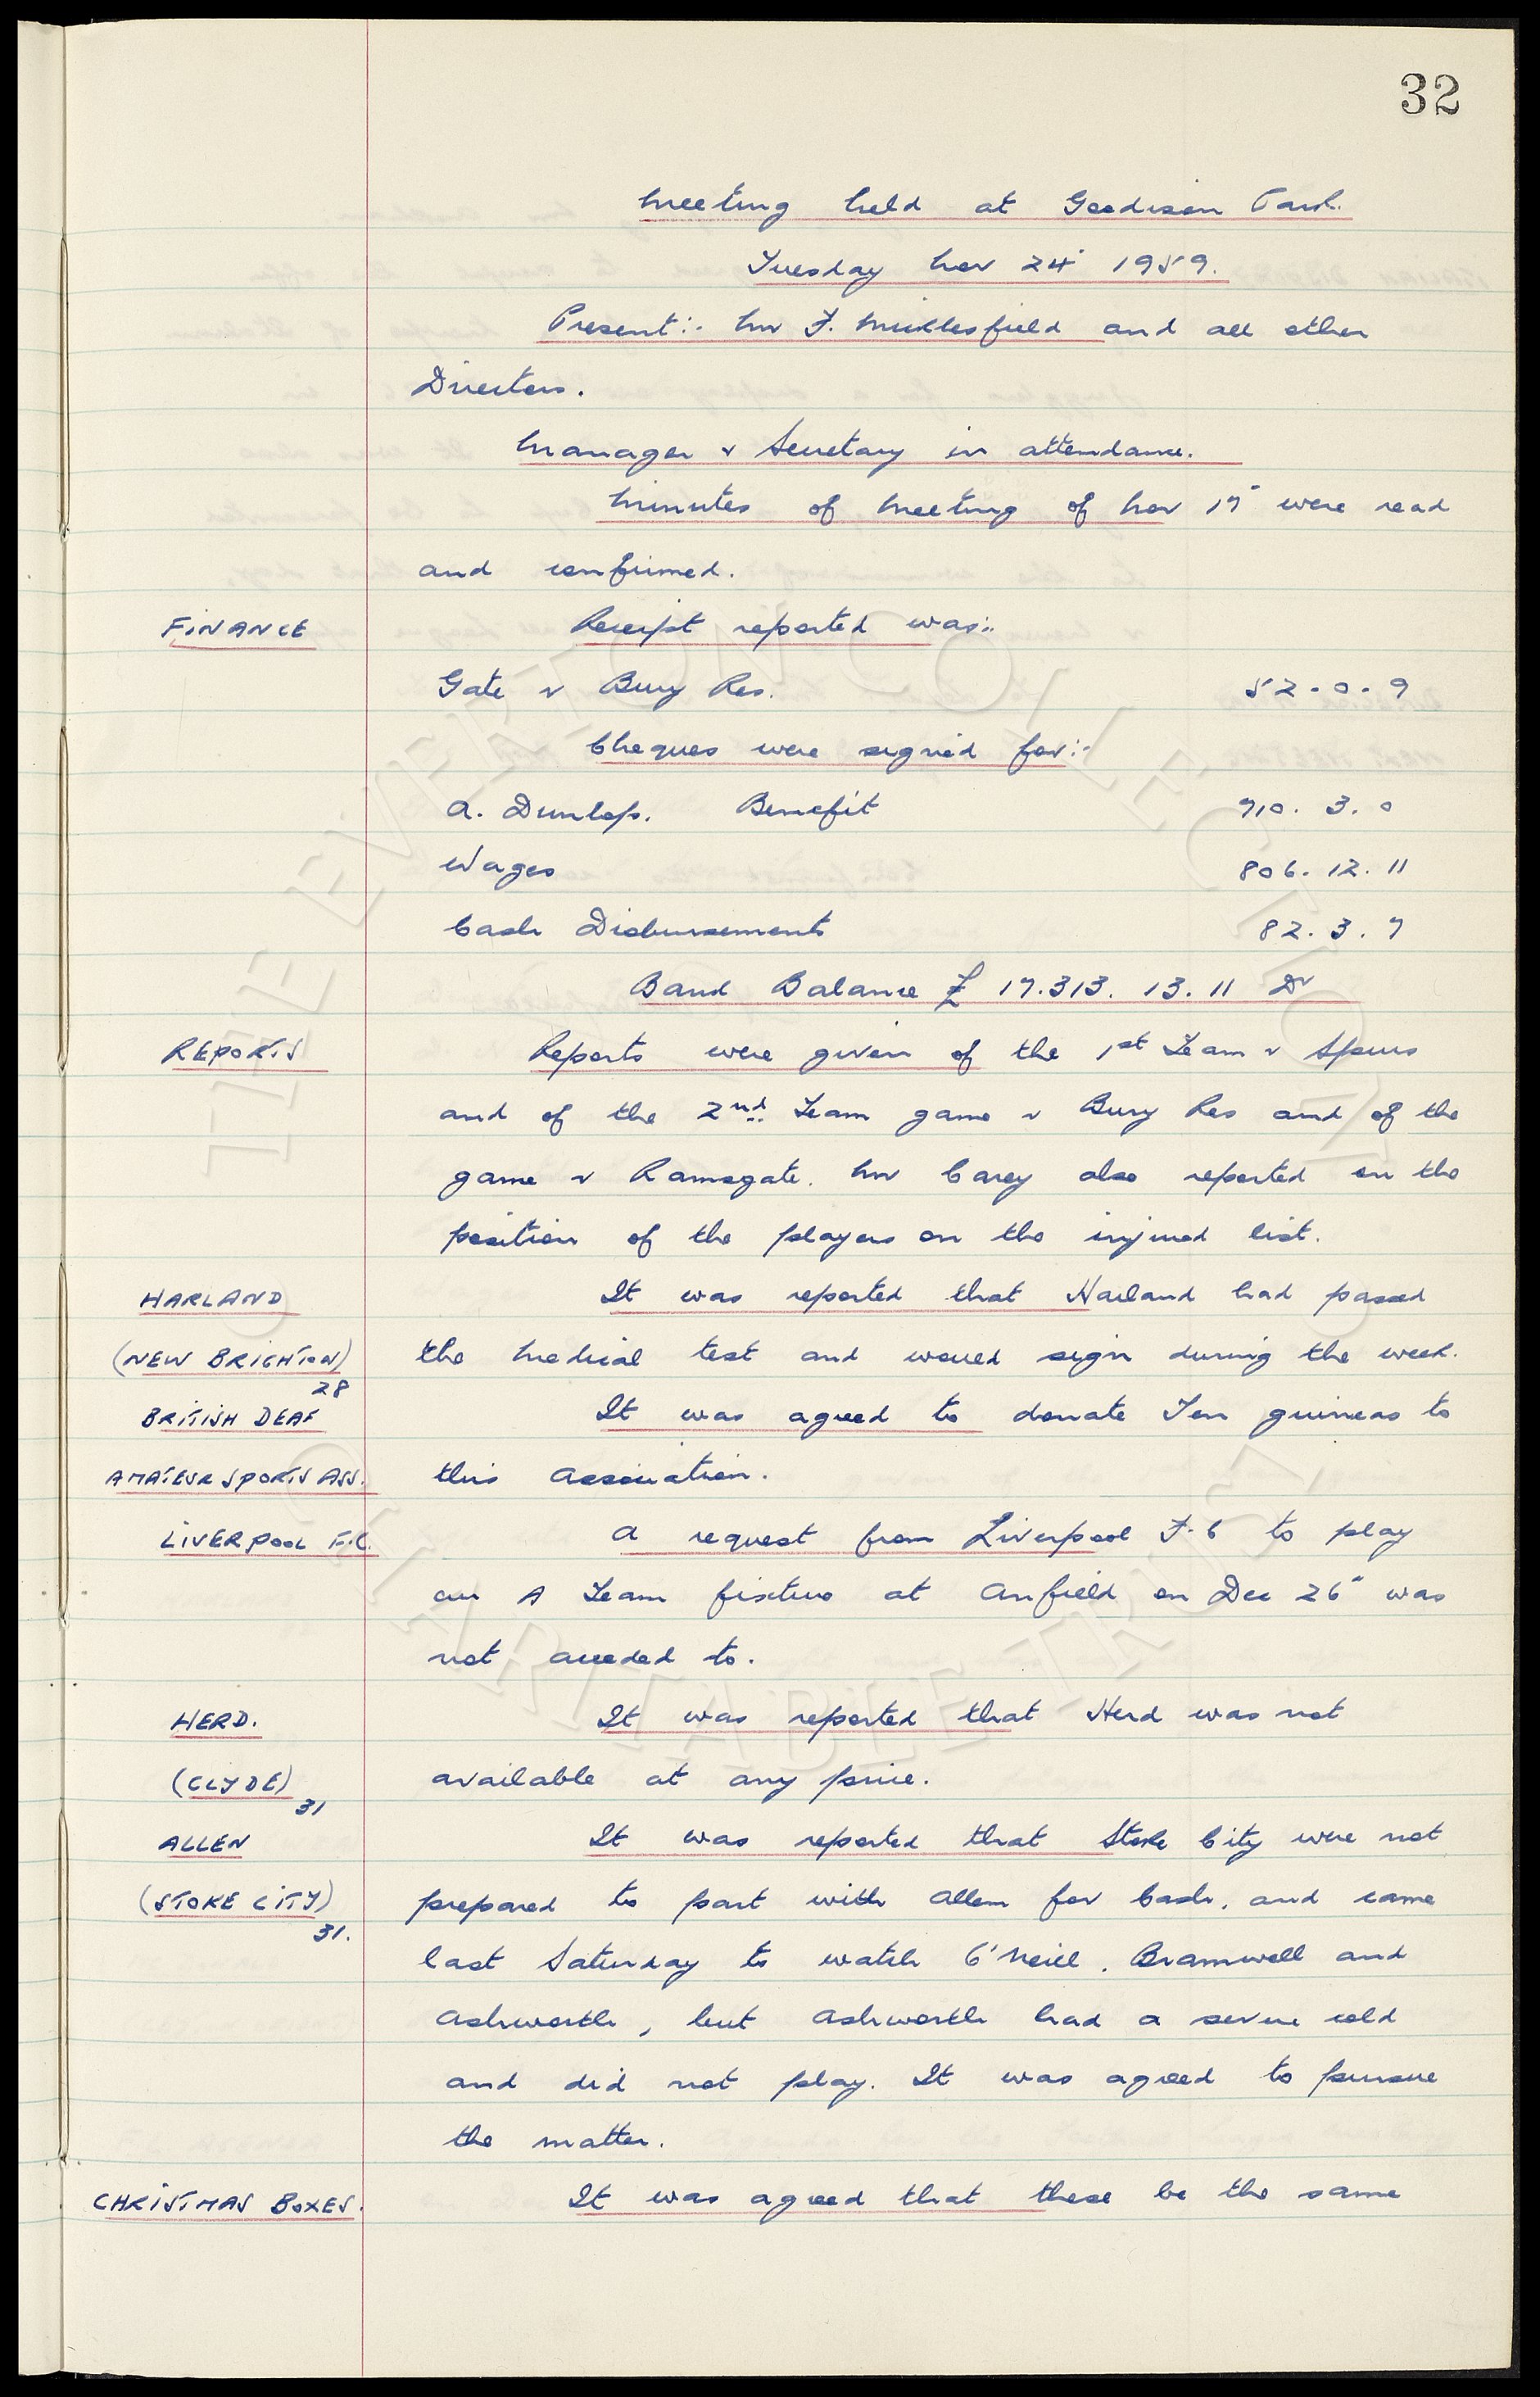 32
Meeting held at Goodison Park.
Tuesday Nov 24" 1959.
Present:- Mr F. Micklesfield and all other
Directors.
Manager & Secretary in attendance.
Minutes of Meeting of Nov 17" were read
and confirmed.
FINANCE Receipt reported was:-
Gate v Bury Res. 52-0-9
Cheques were signed for:-
A. Dunlop. Benefit 710. 3. 0
Wages 806. 12. 11
Cash Disbursements 82. 3. 7
Bank Balance £ 17.313. 13. 11 Dr
REPORTS Reports were given of the 1st Team v Spurs
and of the 2nd Team game v Bury Res and of the
game v Ramsgate. Mr Carey also reported on the
position of the players on the injured list.
HARLAND It was reported that Harland had passed
(NEW BRIGHTON) the Medical test and would sign during the week.
28
BRITISH DEAF It was agreed to donate Ten guineas to
AMATEUR SPORTS ASS. this Association.
LIVERPOOL F.C. A request from Liverpool F.C to play
our A Team fixture at Anfield on Dec 26" was
not acceded to.
HERD. It was reported that Herd was not
(CLYDE) available at any price.
31
ALLEN It was reported that Stoke City were not
(STOKE CITY) prepared to part with Allen for Cash, and came
31.
last Saturday to watch O'Neill, Bramwell and
Ashworth, but Ashworth had a severe cold
and did not play. It was agreed to pursue
the matter.
CHRISTMAS BOXES. It was agreed that these be the same
THE EVERTON COLLECTION